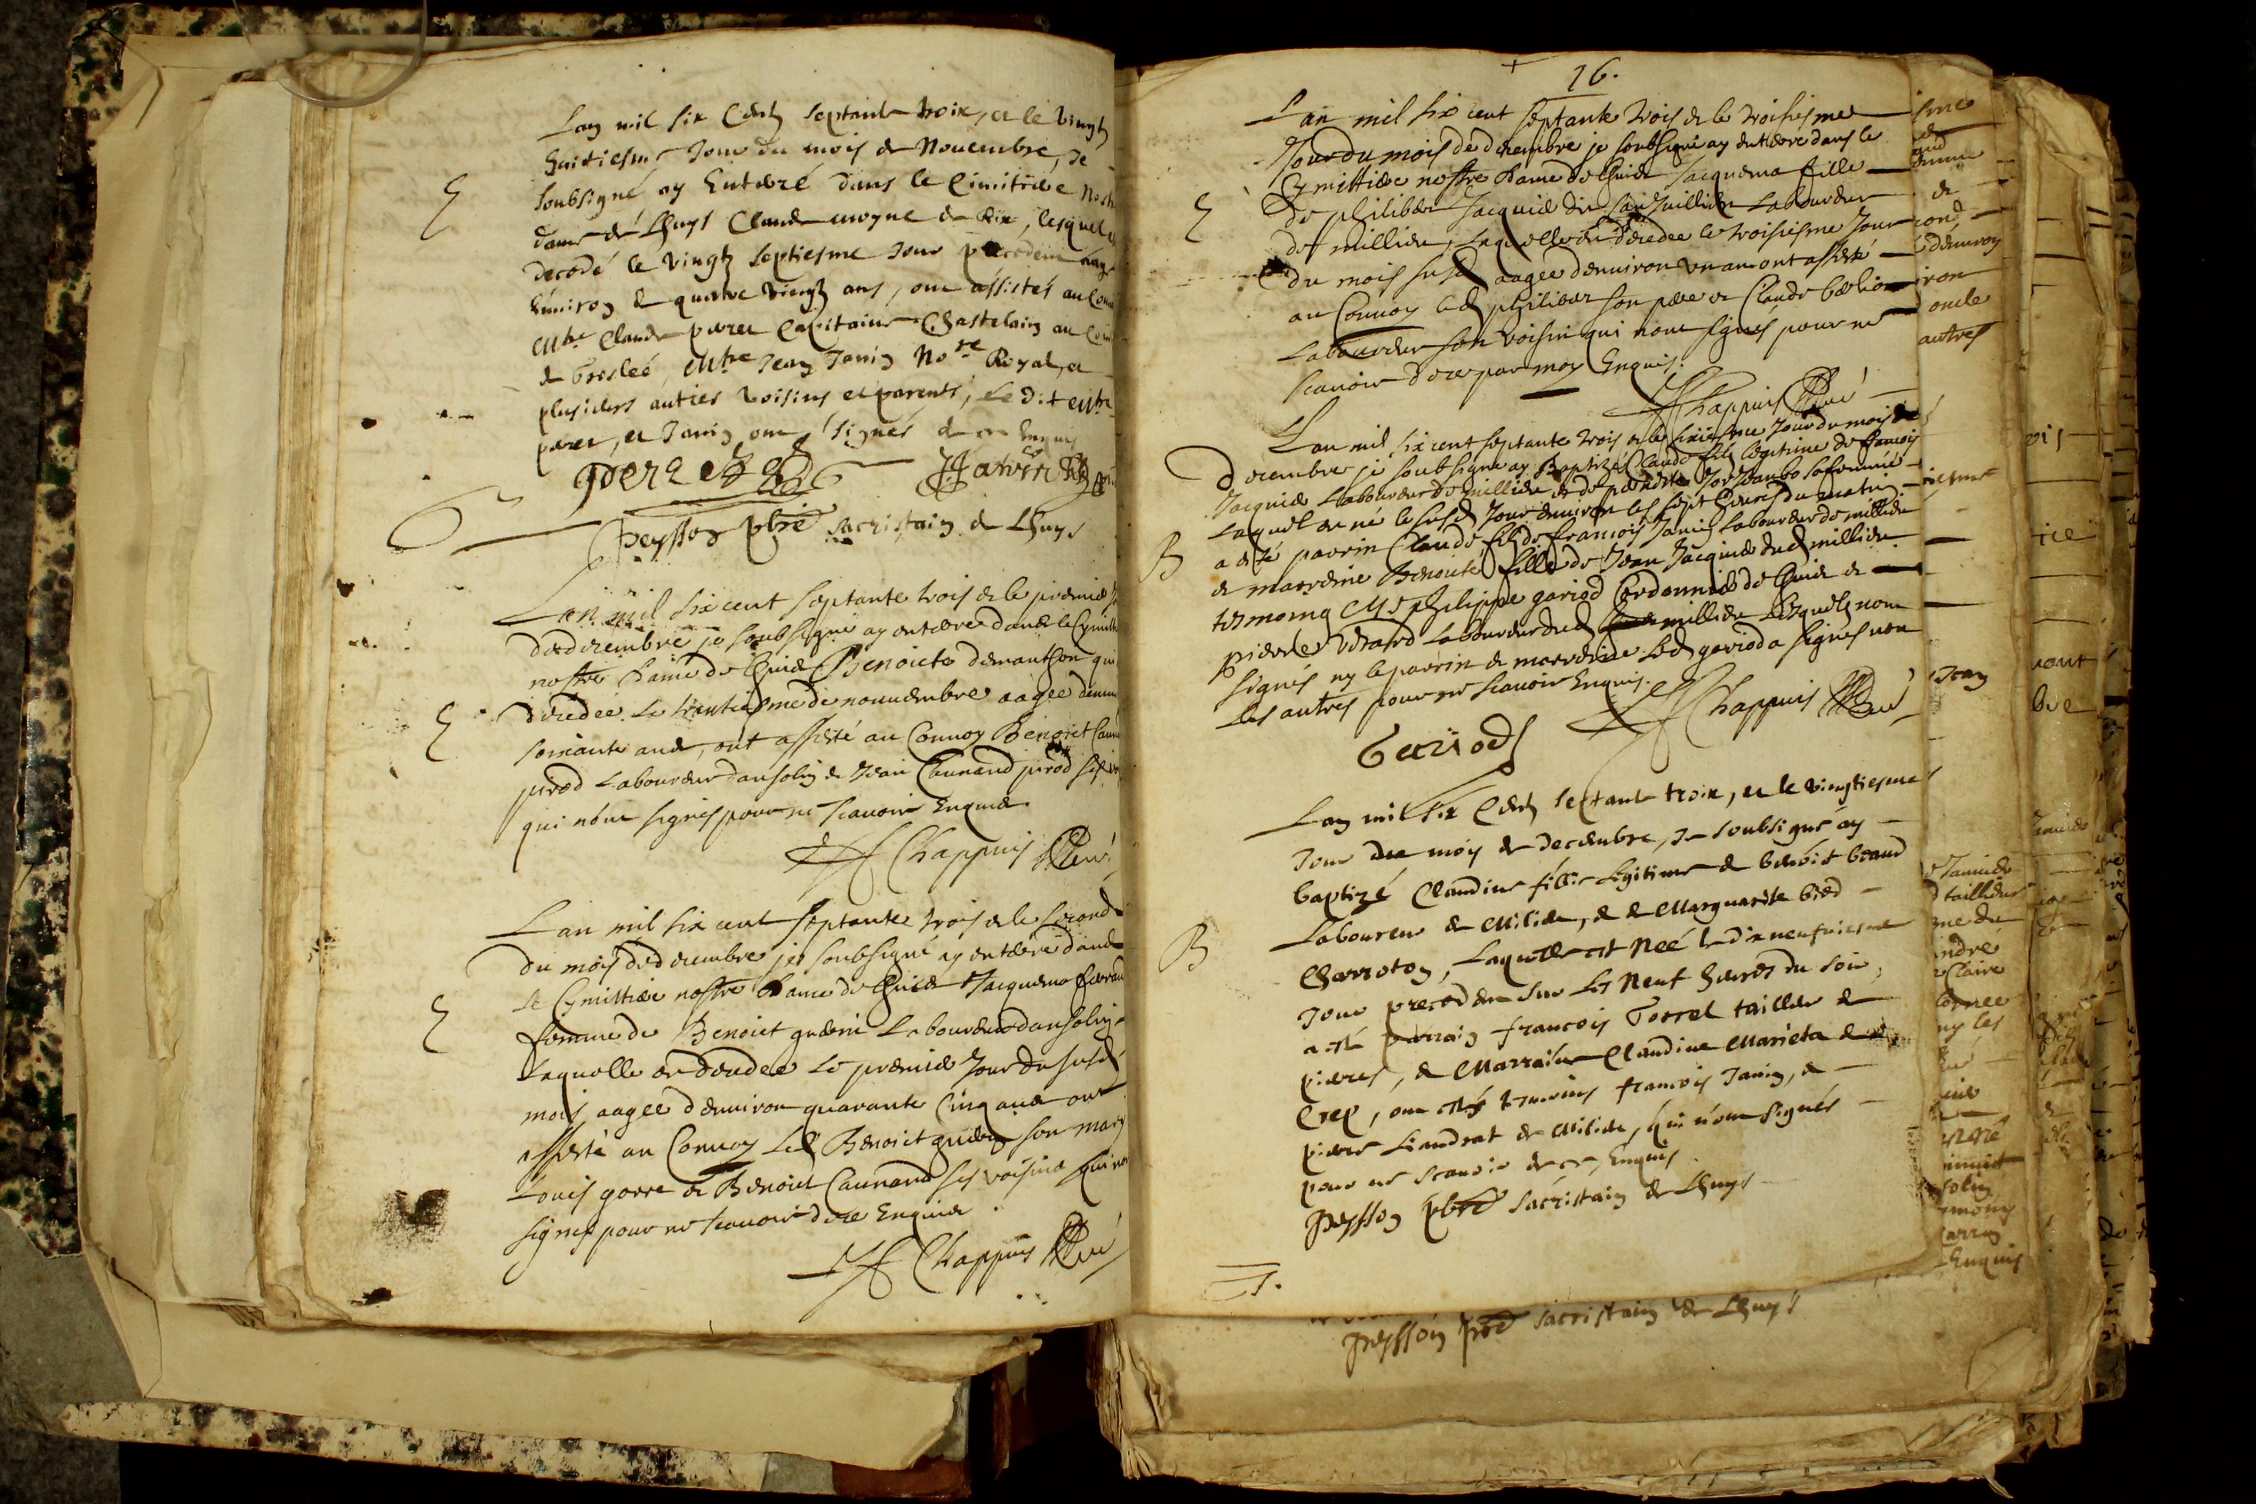 Lan mil six Centz septante troix, et le vingtz
huitiesme Jour du mois de Nouembre, Je
soubsigné ay Enterré dans le Cimitiere Nostre
dame de Lhuys Claude moyne de Rix, lesquel est
decedé le vingtz septiesme Jour precedent aagé
Enuiron de quatre vingtz ans, ont assistés au Conuoy
Mtre Claude peret Capitaine Chastelain au Comté
de Groslée, Mtre Jean Janin Nore Royal, et
plusieurs autres voisins et parents, Le dit Mtre
peret, et Janin ont signés de ce Enquis
Peret
JJanin
Peysson pbre sacristain de Lhuys
E
Lan mil six cent septante trois et le premier
de decembre je soubsigné ay enterré dans le Cymittiere
nostre dame de Lhuis Benoicte demanthon qui
decedée le trentiesme de nouuembre aagée denuiron
soixante ans, ont assisté au Conuoy Benoict Caunand
pirod Laboureur dansolin et Jean Caunand pirod
qui nont signés pour ne scauoir Enquis
Chappuis Curé
E
Lan mil six cent septante trois et le second
du mois de decembre je soubsigné ay enterré dans
le Cymittiere nostre Dame de Lhuis Jacquema
femme de Benoict Laboureur dansolin
Laquelle est decedee le premier Jour du susd
mois aagee denuiron quarante Cinq ans ont
assisté au Conuoy Led Benoict son mary
Louis gorre et Benoict Caunand ses voisins qui nont
signes pour ne scauoir de ce Enquis
Chappuis Curé
E
16.
Lan mil six cent septante trois et le troisiesme
Jour du mois de decembre je soubsigné ay enterre dans le
Cymittiere nostre Dame de Lhuis Jacquema fille
de philibert Jacquier dit Laboureur
de millieu, Laquelle est decedee le troisiesme Jour
du mois susd aagee denuiron un an ont assisté
au Conuoy led philibert son pere et Claude
Laboureur son voisin qui nont signés pour ne
scauoir de ce par moy Enquis.
Chappuis Curé
E
Lan mil six cent septante trois et le sixiesme Jour du mois de
decembre je soubsigné ay Baptizé Claude fils legitime de francois
Jacquier Laboureur de millieu et de pernette sa femme
Lequel est né le susd Jour enuiron les sept heures du matin
a esté parrin Claude fils de francois Janin Laboureur de millieu
et marreine Benoite fille de Jean Jacquier dud millieu
tesmoing Me philippe gariod Cordonnier de Lhuis et
pierre Laboureur dud millieu Lesquels nont
signés ny le parrin et marreine Led gariod a signés non
les autres pour ne scauoir Enquis.
Chappuis Curé
Gariod
B
Lan mil six Centz septante troix, et le vingtiesme
Jour du mois de decembre, Je soubsigné ay
baptizé Claudine fillie Legitime de benoist
Laboureur de Milieu, et de Marguerite
Charreton, Laquelle est Neé le dix neufuiesme
Jour precedent sur Les Neuf heures du soir,
a esté parrain francois Torrel tailleur de
pierres, et Marraine Claudine Marieta de
Crept, ont estés temoins francois Janin, et
pierre Liandrat de Milieu, qui n'ont signés
pour ne scauoir de ce, Enquis
Peysson pbre sacristain de Lhuys
B
Peysson pbre sacristain de Lhuys
autres
oncle
Jean
André
Claire
Enquis